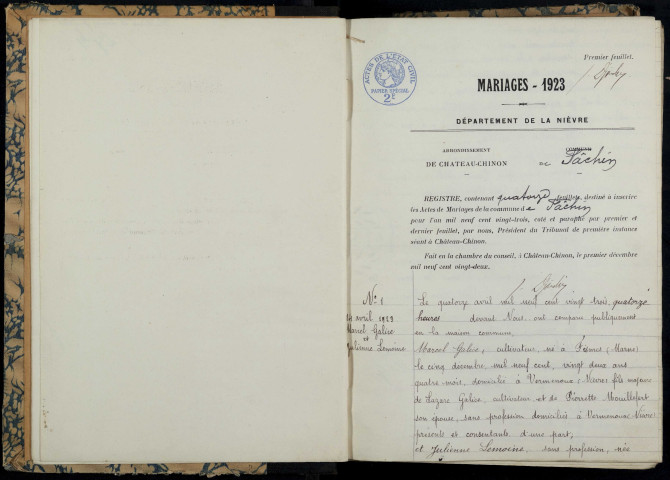 Premier feuillet.
ACTES DE L'ETAT CIVIL
PAPIER SPÉCIAL
2F
MARIAGES - 1923
DÉPARTEMENT DE LA NIÈVRE
ARRONDISSEMENT
DE CHATEAU-CHINON
COMMUNE
DE Tâchés
REGISTRE, contenant quatorze feuillets, destiné à inscrire
les Actes de Mariages de la commune de
pour l'an mil neuf cent vingt-trois, coté et paraphé par premier et
dernier feuillet, par nous, Président du Tribunal de première instance
séant à Château-Chinon.
Fait en la chambre du conseil, à Château-Chinon, le premier décembre
mil neuf cent vingt-deux.
N° 1
14 avril 1923
Marcel
et
Julienne Lemoine
Le quatorze avril mil neuf cent vingt trois, quatorze
heures devant Nous ont comparu publiquement
en la maison commune,
Marcel cultivateur, né à (Marne)
le cinq décembre mil neuf cent, vingt deux ans
quatre mois, domicilié à Vermenoux (Nièvre) fils majeur
de Lazare cultivateur et de Pierrette Mouillefert
son épouse, sans profession domiciliés à Vermenoux (Nièvre)
présents et consentants d'une part,
et Julienne Lemoine, sans profession, née